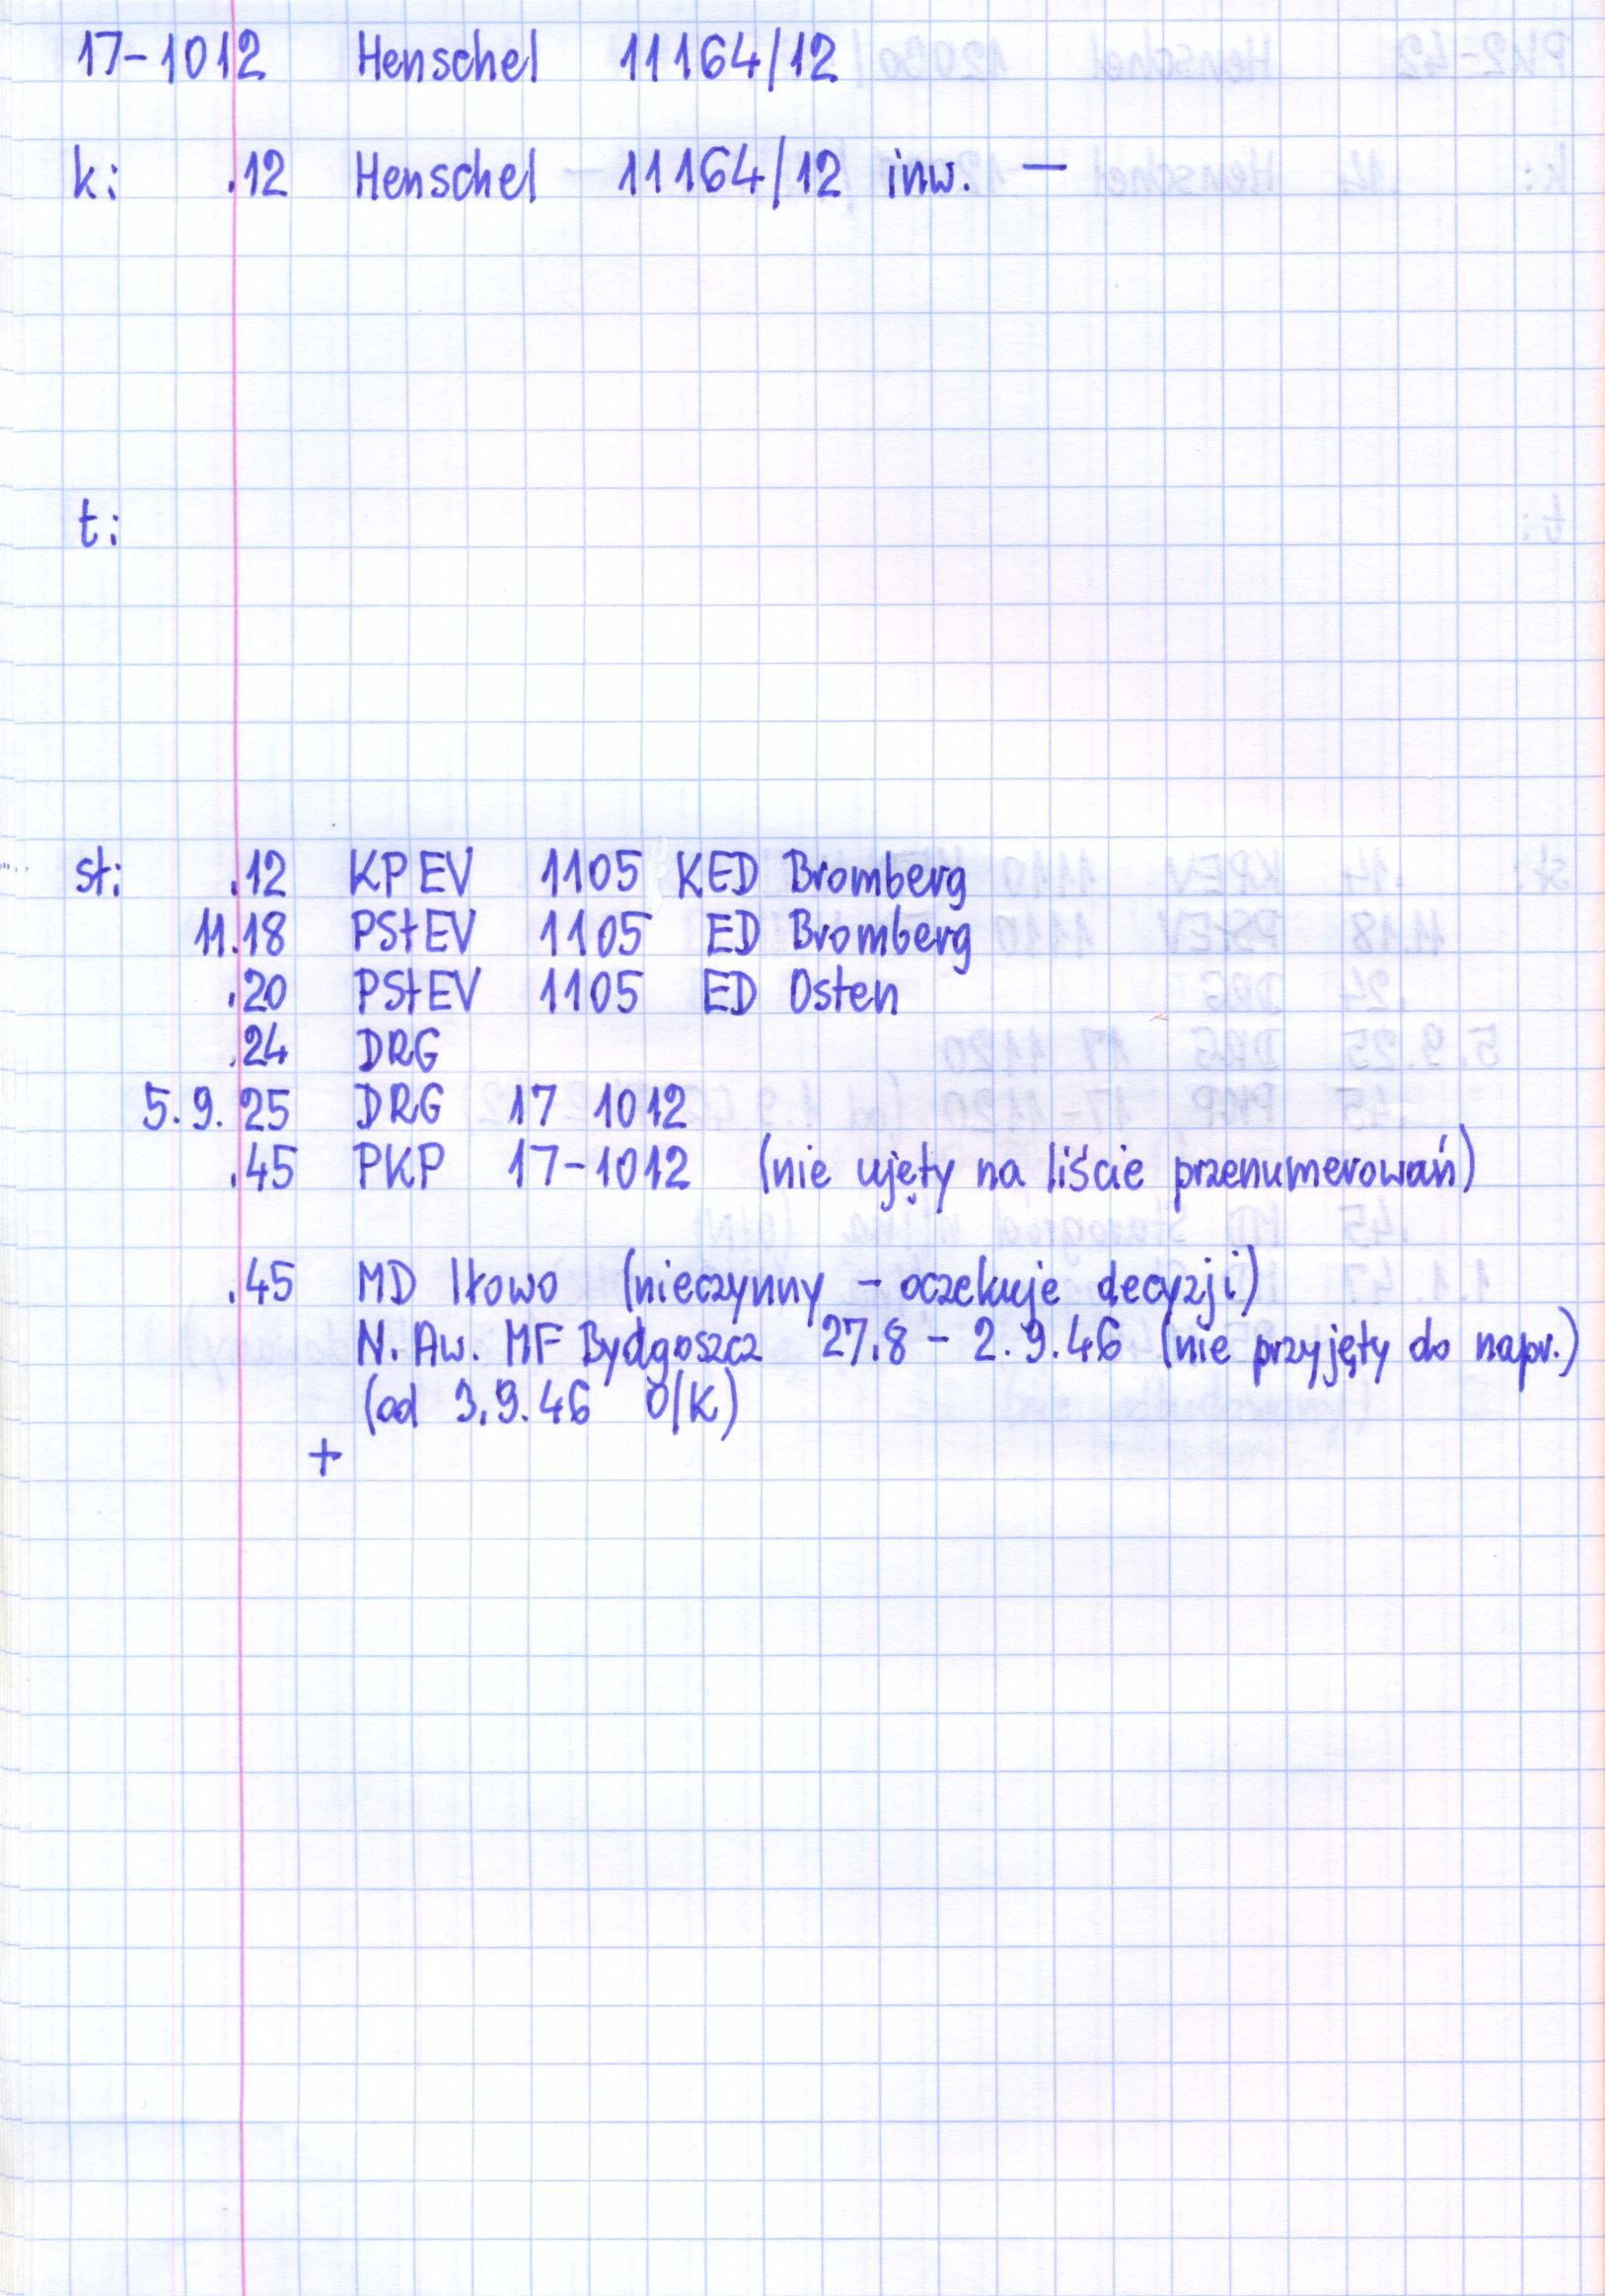 17-1012 Henschel 11164/12
k: .12 Henschel 11164/12 inw. —
t:
st: .12 KPEV 1105 KED Bromberg
11.18 PStEV 1105 ED Bromberg
.20 PStEV 1105 ED Osten
.24 DRG
5.9.25 DRG 17 1012
.45 PKP 17-1012 (nie ujęty na liście przenumerowań)
.45 MD Iłowo (nieczynny - oczekuje decyzji)
N. Aw. MF Bydgoszcz 27.8 - 2.9.46 (nie przyjęty do napr.)
(od 3.9.46 O/K)
+